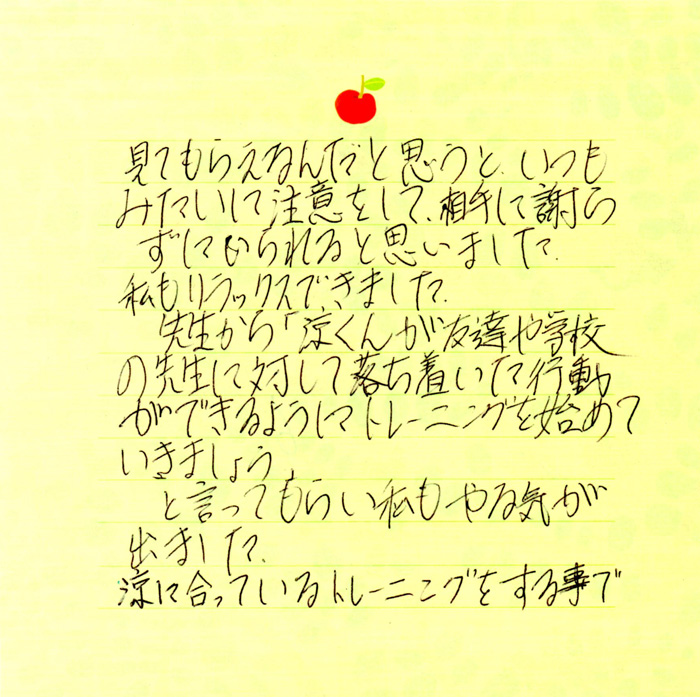 見てもらえるんだと思うと、いつも
みたいに注意をして、相手に謝ら
ずにいられると思いました。
私もリラックスできました。
先生から「涼くんが友達や学校
の先生に対して落ち着いた行動
ができるようにトレーニングを始めて
いきましょう」
と言ってもらい私もやる気が
出ました。
涼に合っているトレーニングをする事で